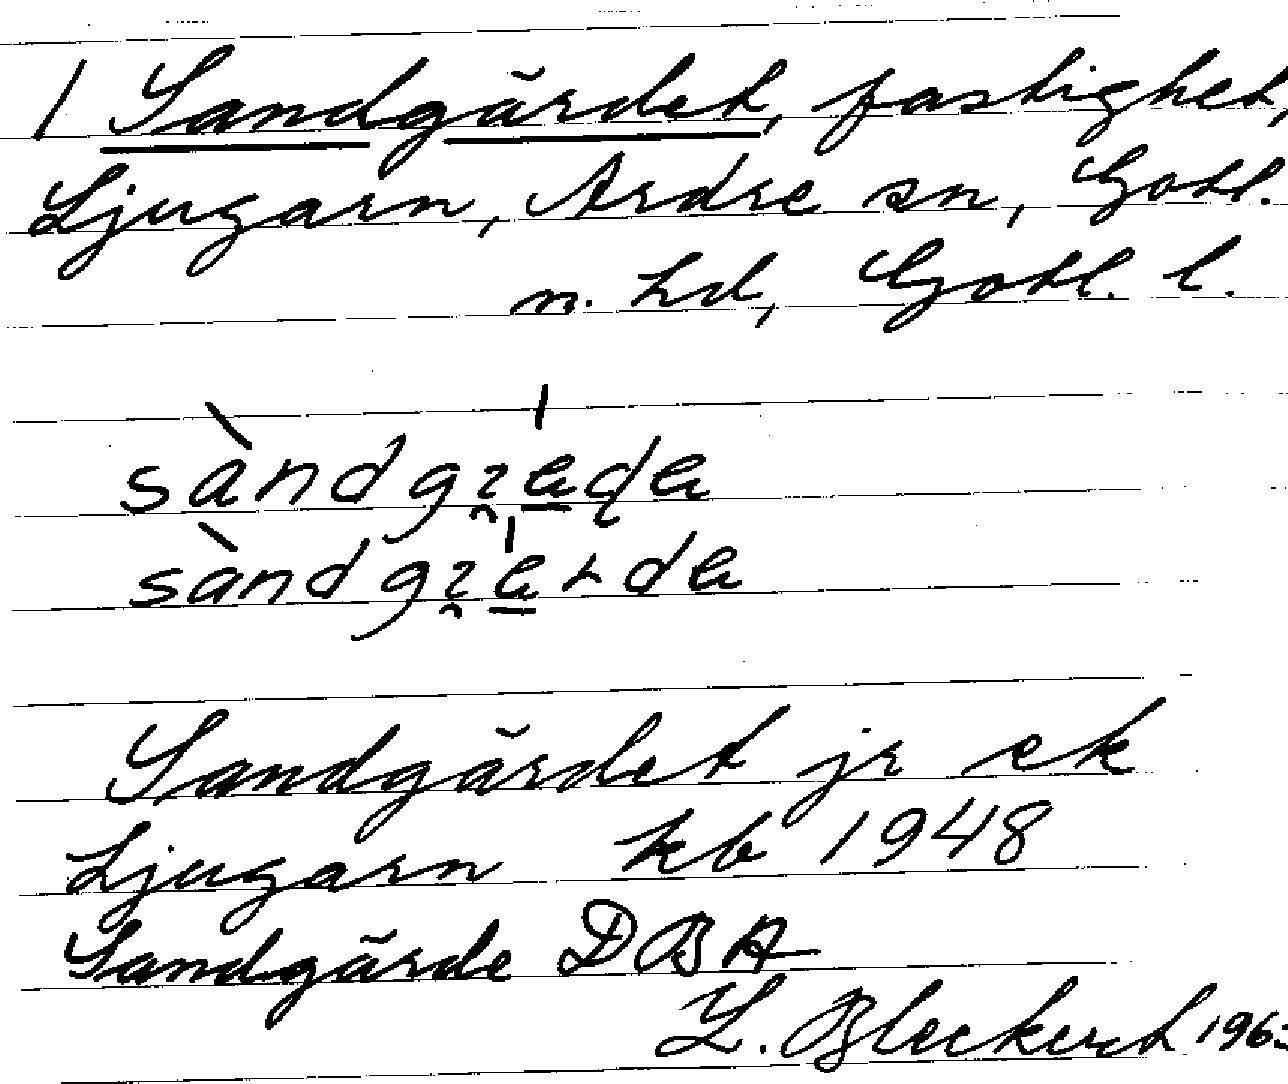 1 Sandgärdet, fastighet,
Ljugarn, Ardre sn, Gotl.
n. hd, Gotl. l.
Sandgärdet jr ek
Ljugarn kb 1948
Sandgärde DBA
L. Bleckert 1963